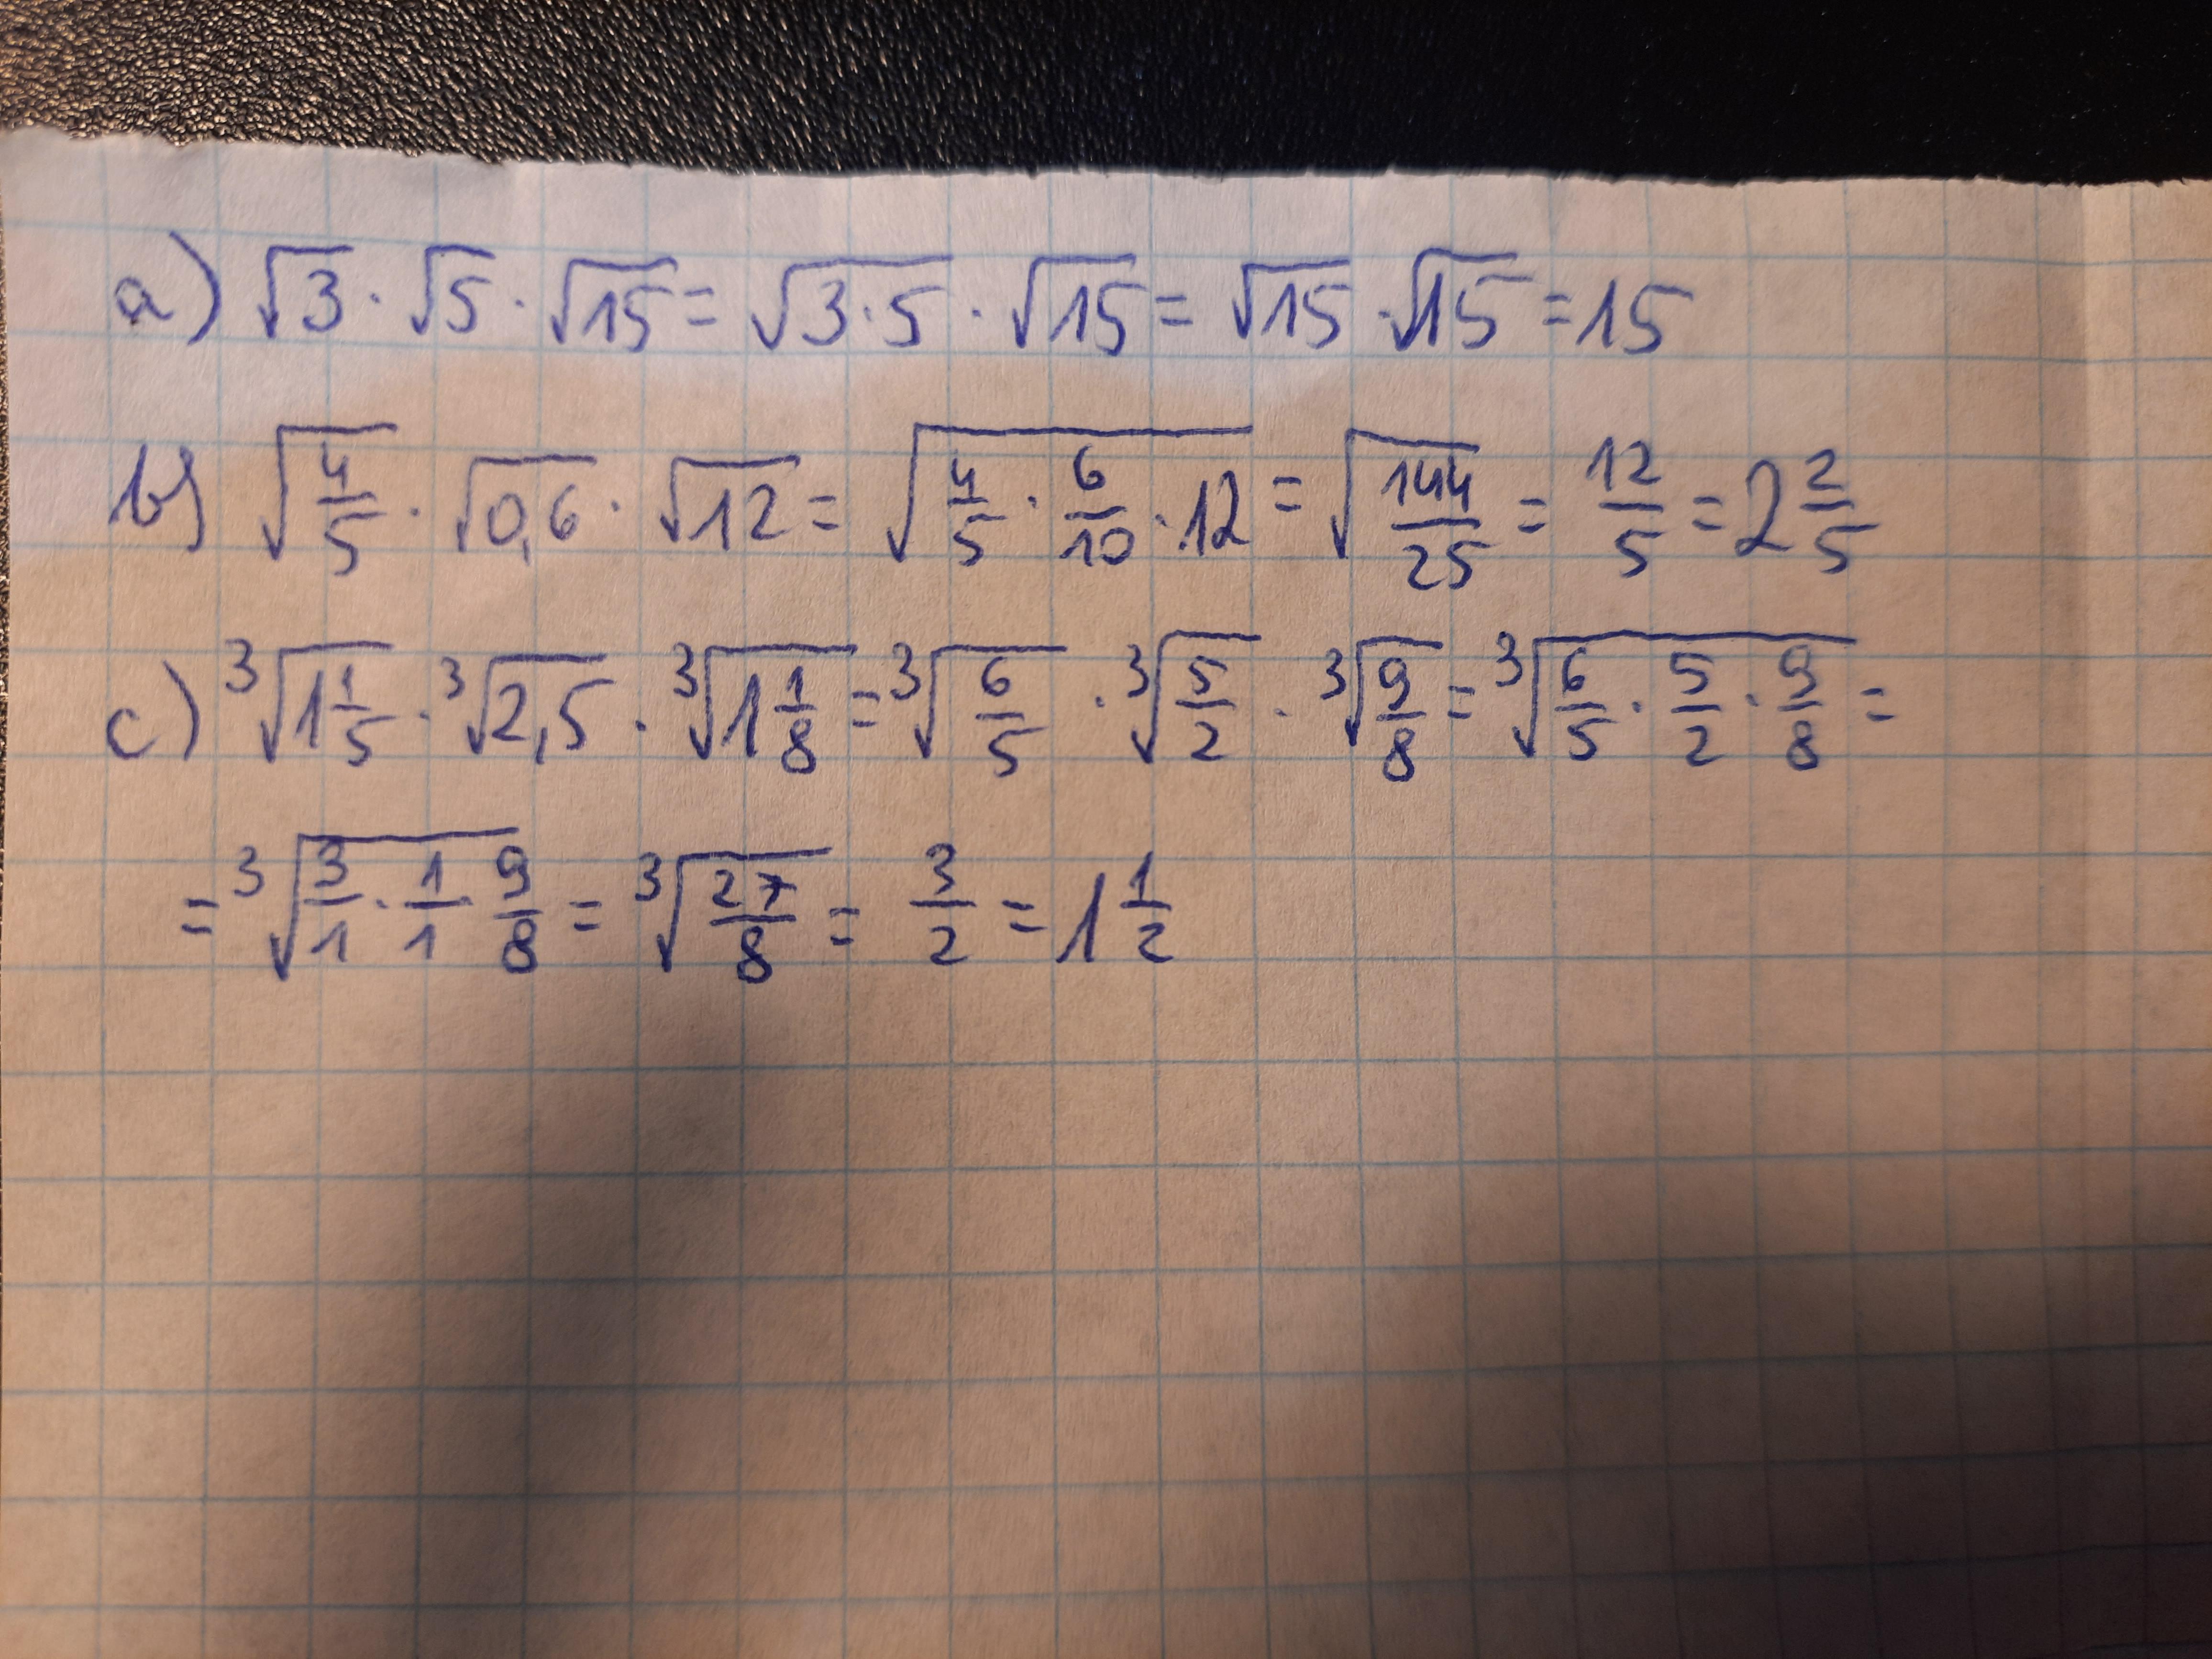 a) √3 · √5 · √15 = √(3·5) · √15 = √15 · √15 = 15
b) √(4/5) · √0,6 · √12 = √(4/5 · 6/10 · 12) = √(144/25) = 12/5 = 2 2/5
c) ³√(1 1/5) · ³√2,5 · ³√(1 1/8) = ³√(6/5) · ³√(5/2) · ³√(9/8) = ³√(6/5 · 5/2 · 9/8) =
= ³√(3/1 · 1/1 · 9/8) = ³√(27/8) = 3/2 = 1 1/2